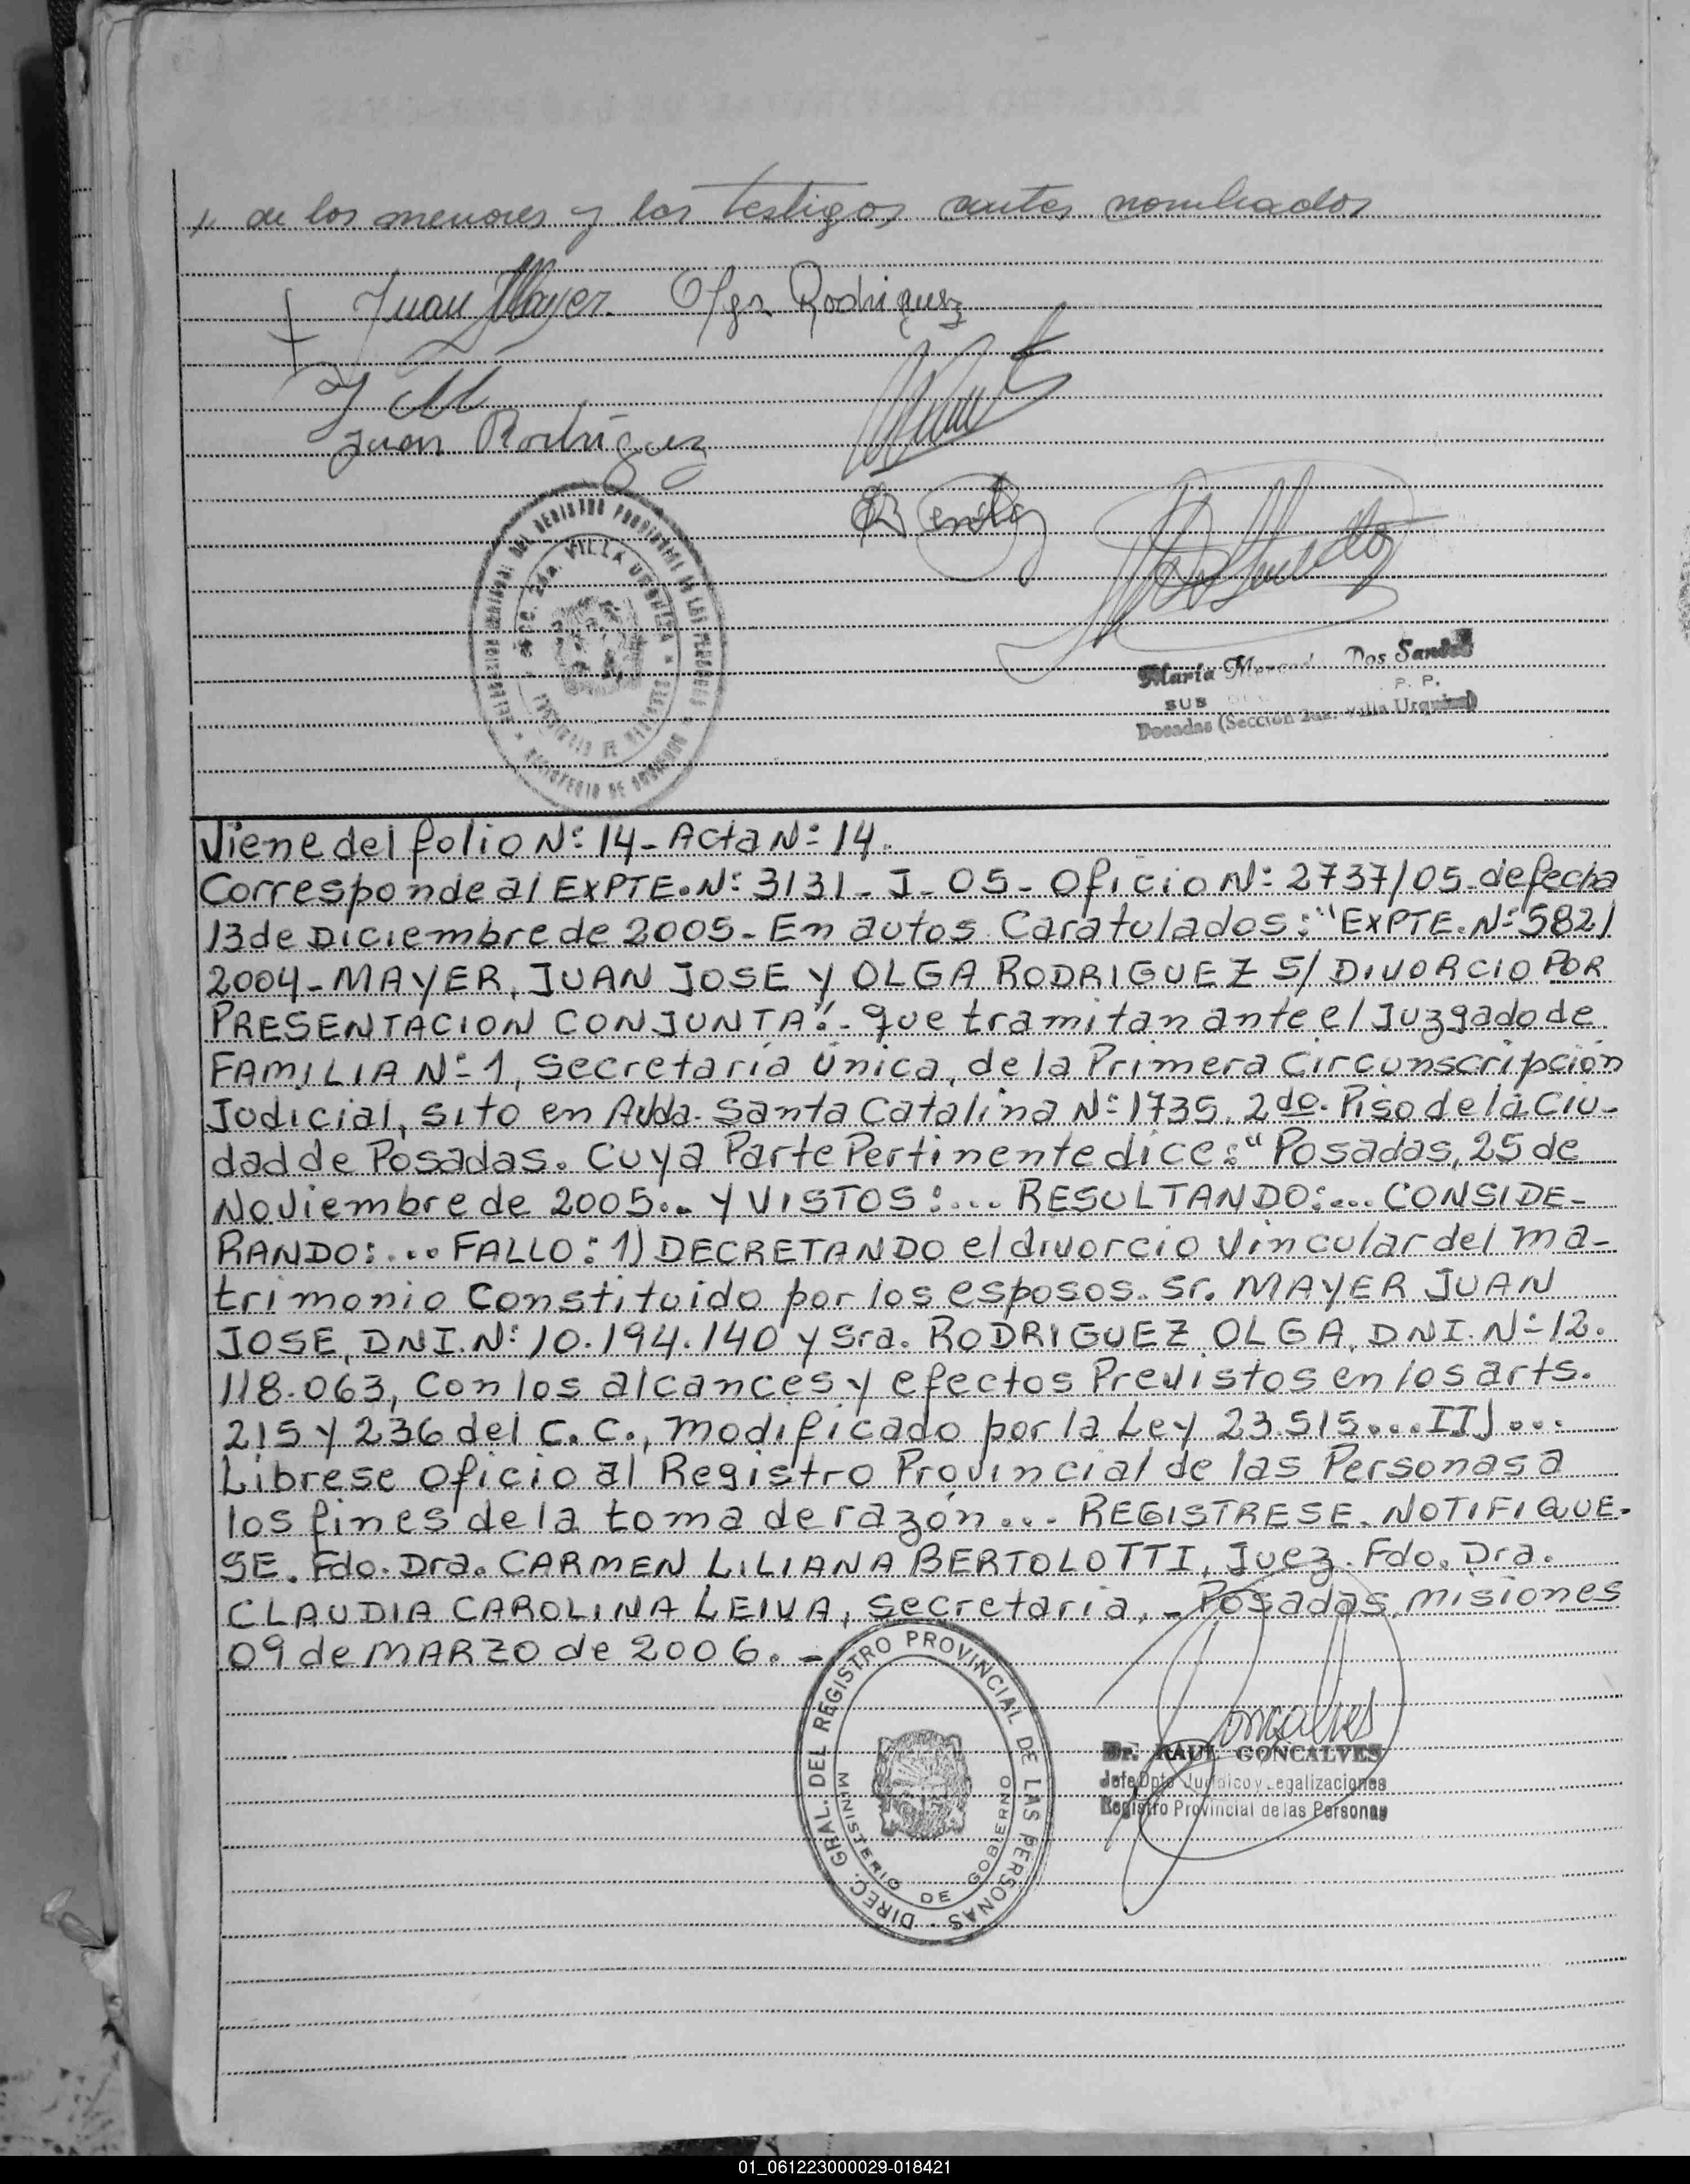 de los menores y los testigos antes nombrados
Juan Mayer. Olga Rodriguez
J M
Juan Rodriguez
DEL REGISTRO PROVINCIAL DE LAS PERSONAS
SECC. 2da. VILLA URQUIZA
MINISTERIO DE GOBIERNO
María Dos Santos
SUB P. P.
Posadas (Sección 2da. Villa Urquiza)
Viene del folio Nº 14 - Acta Nº 14.
Corresponde al EXPTE. Nº 3131 - J - 05 - Oficio Nº 2737/05 - de fecha
13 de Diciembre de 2005 - En autos Caratulados: "EXPTE. Nº 582/
2004 - MAYER, JUAN JOSE y OLGA RODRIGUEZ S/ DIVORCIO POR
PRESENTACION CONJUNTA". - que tramitan ante el Juzgado de
FAMILIA Nº 1, Secretaría Única, de la Primera Circunscripción
Judicial, sito en Avda. Santa Catalina Nº 1735, 2do. Piso de la Ciu-
dad de Posadas. Cuya Parte Pertinente dice: "Posadas, 25 de
Noviembre de 2005.. Y VISTOS:... RESULTANDO:... CONSIDE-
RANDO:... FALLO: 1) DECRETANDO el divorcio vincular del ma-
trimonio Constituido por los esposos. Sr. MAYER JUAN
JOSE, DNI. Nº 10.194.140 y Sra. RODRIGUEZ OLGA, DNI. Nº 12.
118.063, Con los alcances y efectos Previstos en los arts.
215 y 236 del C.C., modificado por la Ley 23.515... II)...
Librese Oficio al Registro Provincial de las Personas a
los fines de la toma de razón... REGISTRESE. NOTIFIQUE-
SE. Fdo. Dra. CARMEN LILIANA BERTOLOTTI, Juez. Fdo. Dra.
CLAUDIA CAROLINA LEIVA, Secretaria, - Posadas, misiones
09 de MARZO de 2006. -
DIREC. GRAL. DEL REGISTRO PROVINCIAL DE LAS PERSONAS
MINISTERIO DE GOBIERNO
Goncalves
Dr. RAUL GONCALVES
Jefe Dpto Jurídico y Legalizaciones
Registro Provincial de las Personas
01_061223000029-018421